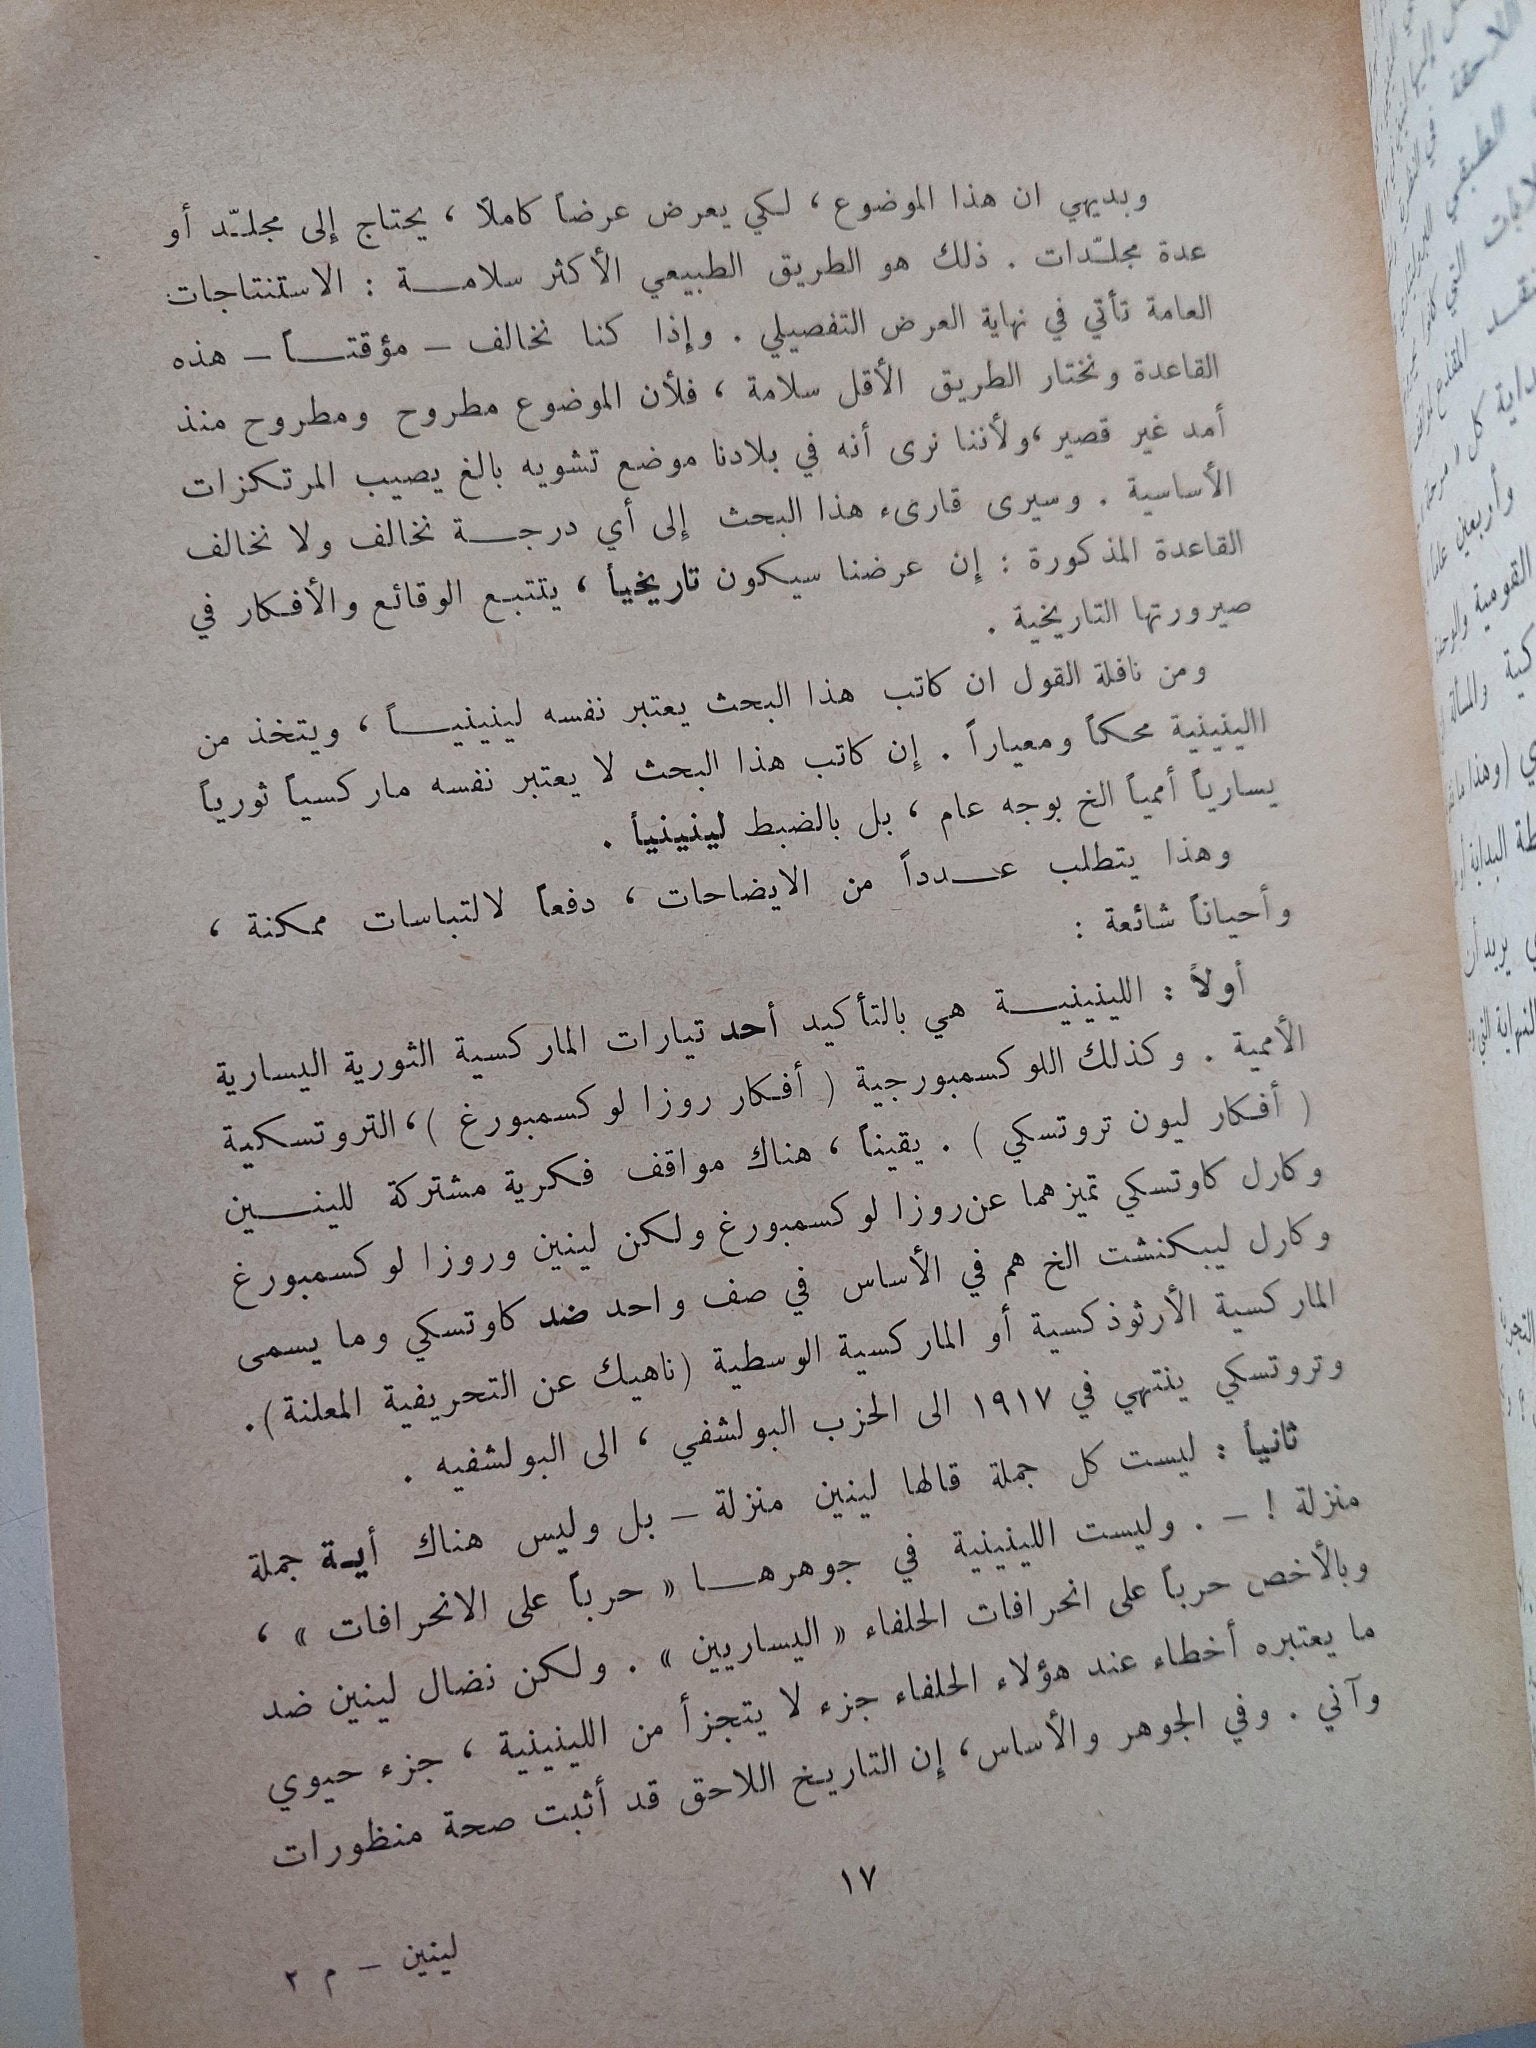 وبديهي ان هذا الموضوع ، لكي يعرض عرضاً كاملاً ، يحتاج إلى مجلّد أو
عدة مجلّدات . ذلك هو الطريق الطبيعي الأكثر سلامة : الاستنتاجات
العامة تأتي في نهاية العرض التفصيلي . وإذا كنا نخالف – مؤقتاً – هذه
القاعدة ونختار الطريق الأقل سلامة ، فلأن الموضوع مطروح ومطروح منذ
أمد غير قصير ، ولأننا نرى أنه في بلادنا موضع تشويه بالغ يصيب المرتكزات
الأساسية . وسيرى قارىء هذا البحث إلى أي درجة نخالف ولا نخالف
القاعدة المذكورة : إن عرضنا سيكون تاريخياً ، يتتبع الوقائع والأفكار في
صيرورتها التاريخية .
ومن نافلة القول ان كاتب هذا البحث يعتبر نفسه لينينياً ، ويتخذ من
االينينية محكاً ومعياراً . إن كاتب هذا البحث لا يعتبر نفسه ماركسياً ثورياً
يسارياً أممياً الخ بوجه عام ، بل بالضبط لينينياً .
وهذا يتطلب عدداً من الايضاحات ، دفعاً لالتباسات ممكنة ،
وأحياناً شائعة :
أولاً : اللينينية هي بالتأكيد أحد تيارات الماركسية الثورية اليسارية
الأممية . وكذلك اللوكسمبورجية ( أفكار روزا لوكسمبورغ ) ، التروتسكية
( أفكار ليون تروتسكي ) . يقيناً ، هناك مواقف فكرية مشتركة للينين
وكارل كاوتسكي تميزهما عن روزا لوكسمبورغ ولكن لينين وروزا لوكسمبورغ
وكارل ليبكنشت الخ هم في الأساس في صف واحد ضد كاوتسكي وما يسمى
الماركسية الأرثوذكسية أو الماركسية الوسطية (ناهيك عن التحريفية المعلنة) .
وتروتسكي ينتهي في ١٩١٧ الى الحزب البولشفي ، الى البولشفيه .
ثانياً : ليست كل جملة قالها لينين منزلة – بل وليس هناك أية جملة
منزلة ! – . وليست اللينينية في جوهرها « حرباً على الانحرافات » ،
وبالأخص حرباً على انحرافات الحلفاء « اليساريين » . ولكن نضال لينين ضد
ما يعتبره أخطاء عند هؤلاء الحلفاء جزء لا يتجزأ من اللينينية ، جزء حيوي
وآني . وفي الجوهر والأساس ، إن التاريخ اللاحق قد أثبت صحة منظورات
١٧
لينين – م ٢